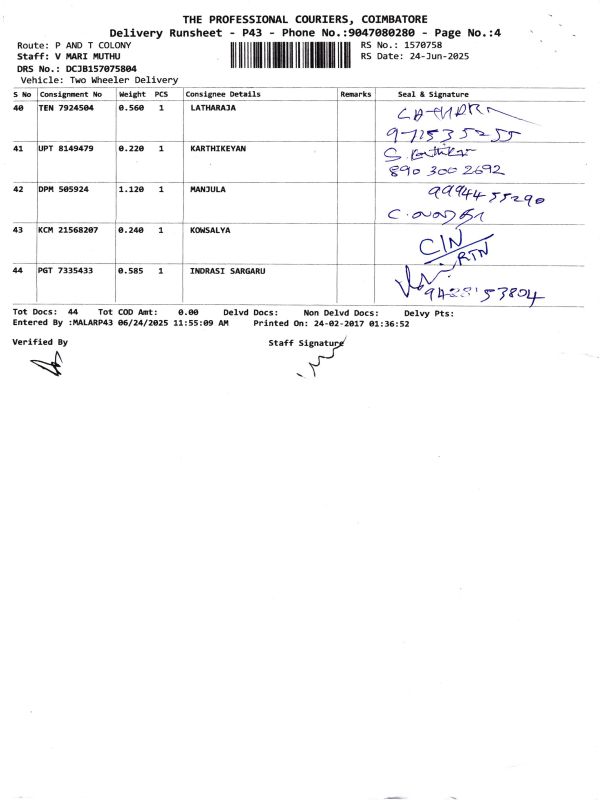 THE PROFESSIONAL COURIERS, COIMBATORE
Delivery Runsheet - P43 - Phone No.:9047080280 - Page No.:4
Route: P AND T COLONY RS No.: 1570758
Staff: V MARI MUTHU RS Date: 24-Jun-2025
DRS No.: DCJB157075804
Vehicle: Two Wheeler Delivery
S No Consignment No Weight PCS Consignee Details Remarks Seal & Signature
40 TEN 7924504 0.560 1 LATHARAJA
9715535255
41 UPT 8149479 0.220 1 KARTHIKEYAN S. Karthikan
890 300 2692
42 DPM 505924 1.120 1 MANJULA 9994455290
43 KCM 21568207 0.240 1 KOWSALYA CIN
RTN
44 PGT 7335433 0.585 1 INDRASI SARGARU
Tot Docs: 44 Tot COD Amt: 0.00 Delvd Docs: Non Delvd Docs: Delvy Pts:
Entered By :MALARP43 06/24/2025 11:55:09 AM Printed On: 24-02-2017 01:36:52
Verified By Staff Signature